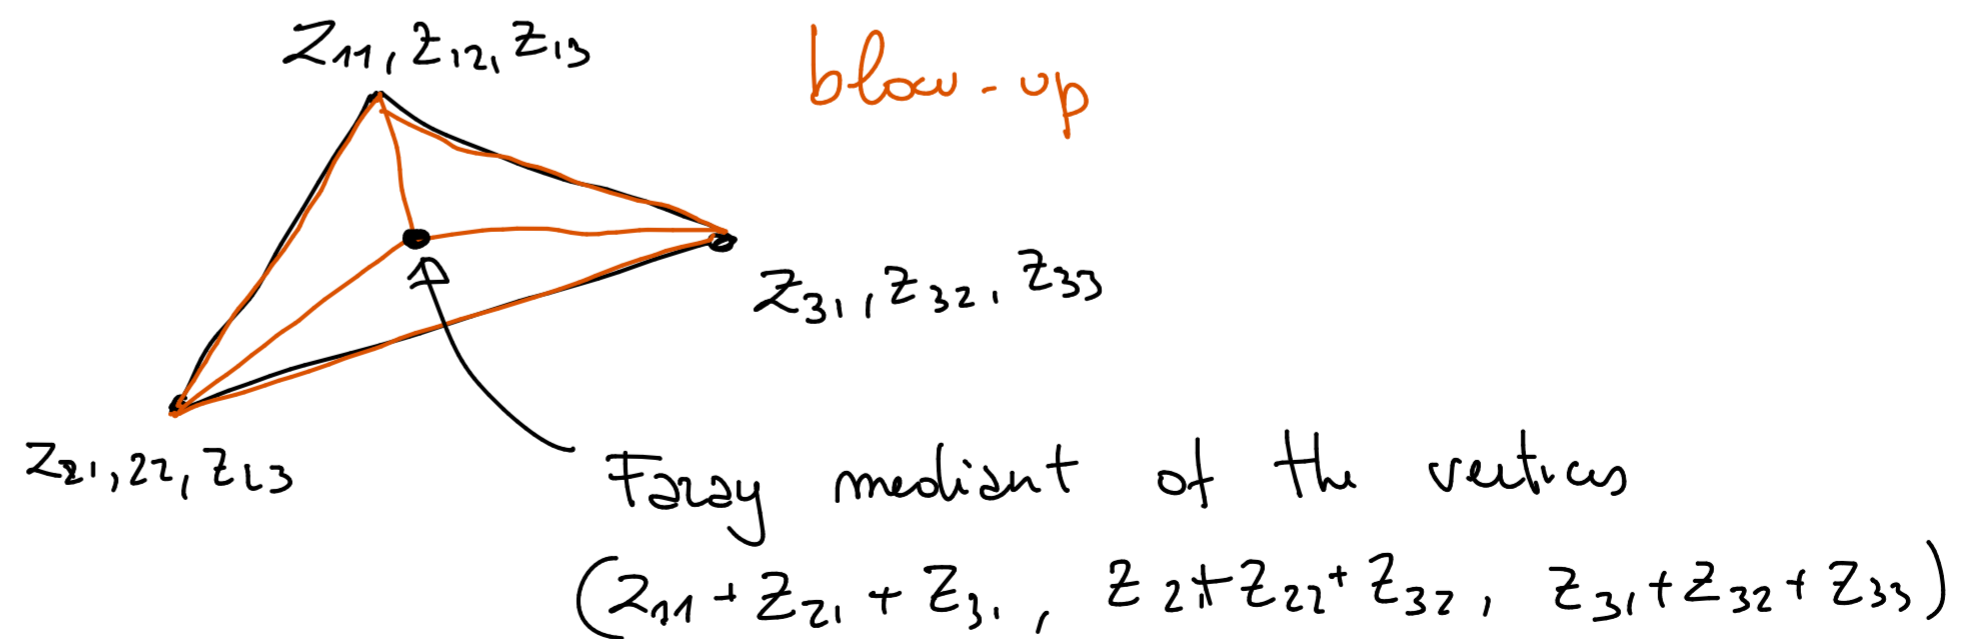 z11, z12, z13
blow-up
z31, z32, z33
z21, 22, z23
Faray mediant of the vertices
(z11 + z21 + z31, z21+z22+z32, z31+z32+z33)